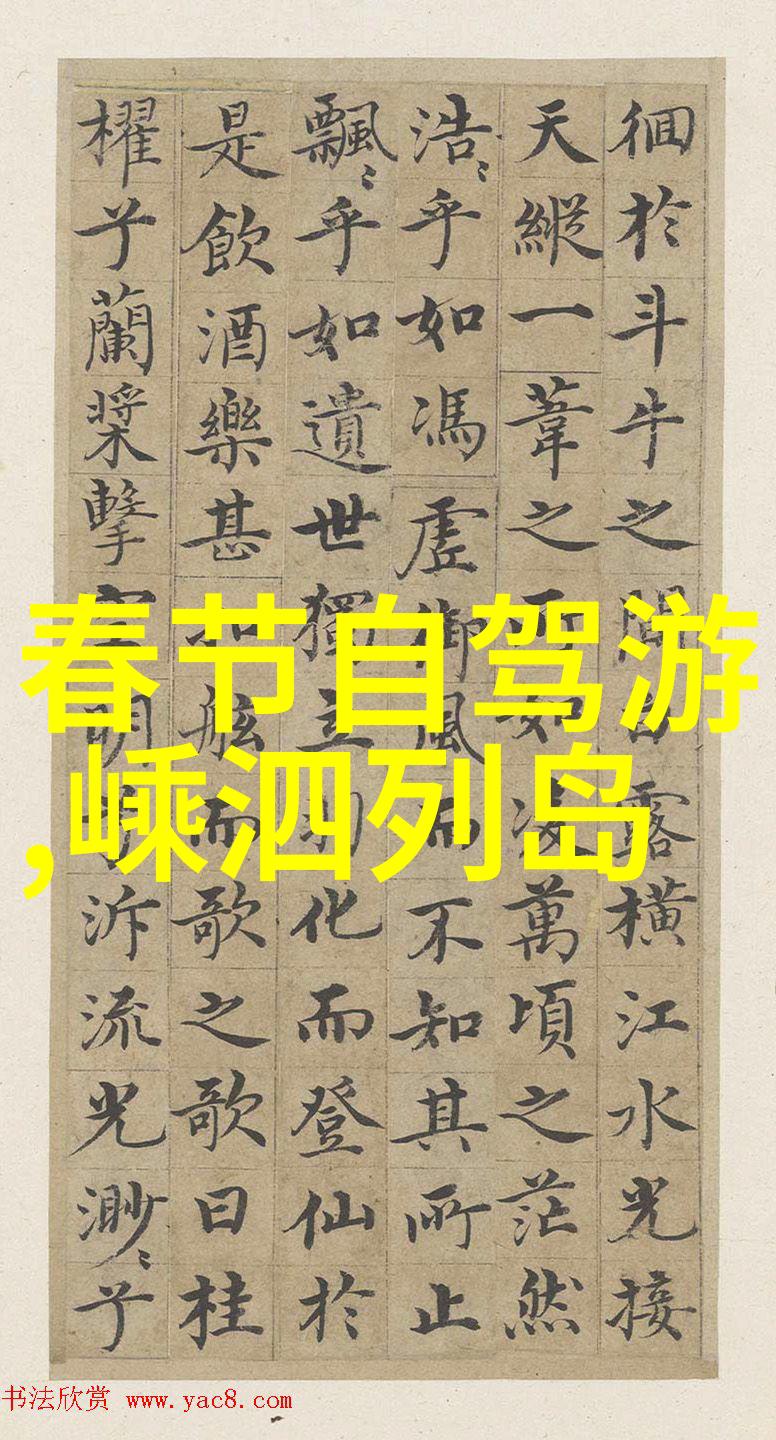 徊於斗牛之間白露橫江水光接
天縱一葦之所如凌萬頃之茫然
浩〻乎如馮虛御風而不知其所止
飄〻乎如遺世獨立羽化而登仙於
是飲酒樂甚扣舷而歌之歌曰桂
櫂兮蘭槳擊空明兮泝流光渺〻兮
春节自驾游
,嵊泗列岛
书法欣赏 www.yac8.com